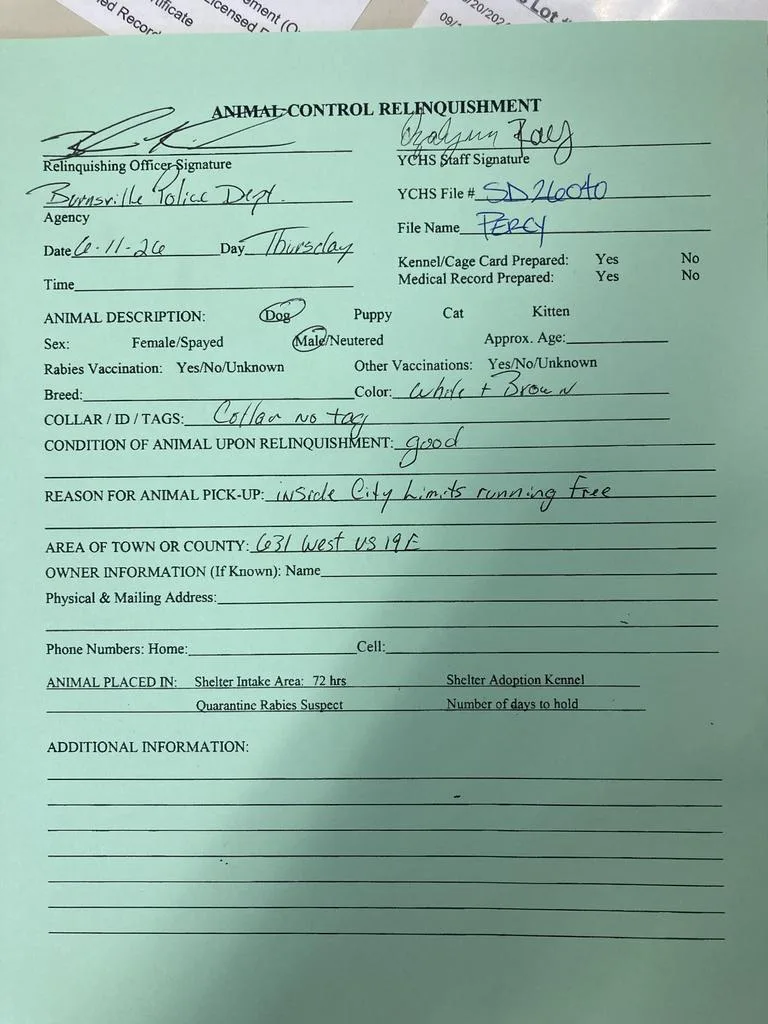 ement (O
tificate
icensed F
ed Record
/20/202
09/
s Lot #
ANIMAL CONTROL RELINQUISHMENT
Relinquishing Officer Signature
YCHS Staff Signature
Burnsville Police Dept.
YCHS File # SD26040
Agency
File Name PERCY
Date 6-11-26 Day Thursday
Kennel/Cage Card Prepared: Yes No
Time
Medical Record Prepared: Yes No
ANIMAL DESCRIPTION: Dog Puppy Cat Kitten
Sex: Female/Spayed Male/Neutered Approx. Age:
Rabies Vaccination: Yes/No/Unknown Other Vaccinations: Yes/No/Unknown
Breed: Color: White + Brown
COLLAR / ID / TAGS: Collar no tag
CONDITION OF ANIMAL UPON RELINQUISHMENT: good
REASON FOR ANIMAL PICK-UP: inside City Limits running free
AREA OF TOWN OR COUNTY: 631 West US 19E
OWNER INFORMATION (If Known): Name
Physical & Mailing Address:
Phone Numbers: Home: Cell:
ANIMAL PLACED IN: Shelter Intake Area: 72 hrs Shelter Adoption Kennel
Quarantine Rabies Suspect Number of days to hold
ADDITIONAL INFORMATION: